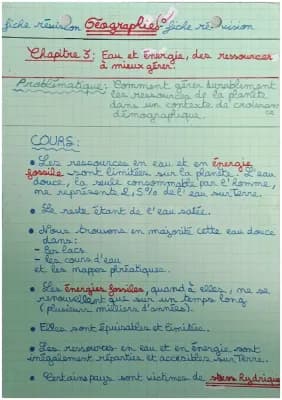 fiche révision Géographie fiche ré-vision
Chapitre 3: Eau et énergie, des ressources
à mieux gérer.
Problématique: Comment gérer durablement
les ressources de la planète
dans un contexte de croissan
ce
démographique.
COURS:
• Les ressources en eau et en énergie
fossile sont limitées sur la planète. L'eau
douce, la seule consommable par l'homme,
ne représente 2,5% de l'eau sur Terre.
• Le reste étant de l'eau salée.
• Nous trouvons en majorité cette eau douce
dans:
- les lacs
- les cours d'eau
et les nappes phréatiques.
• Les énergies fossiles, quand à elles, ne se
renouvellant que sur un temps long
(plusieurs milliers d'années).
• Elles sont épuisables et limitées.
• Les ressources en eau et en énergie sont
inégalement réparties et accesibles sur Terre.
• Certains pays sont victimes de stress hydrique